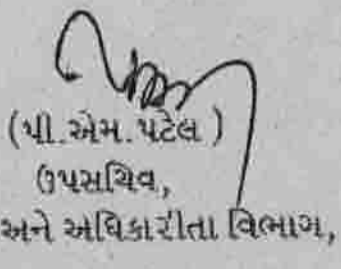 (પી.એમ.પટેલ )
ઉપસચિવ,
અને અધિકારીતા વિભાગ,